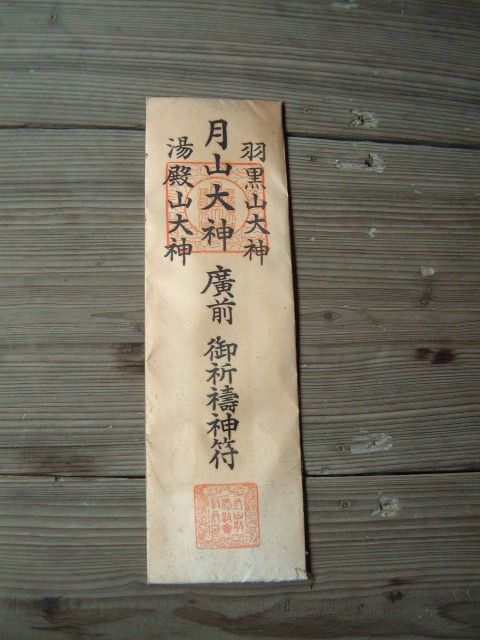 羽黒山大神
月山大神
湯殿山大神
廣前 御祈禱神符